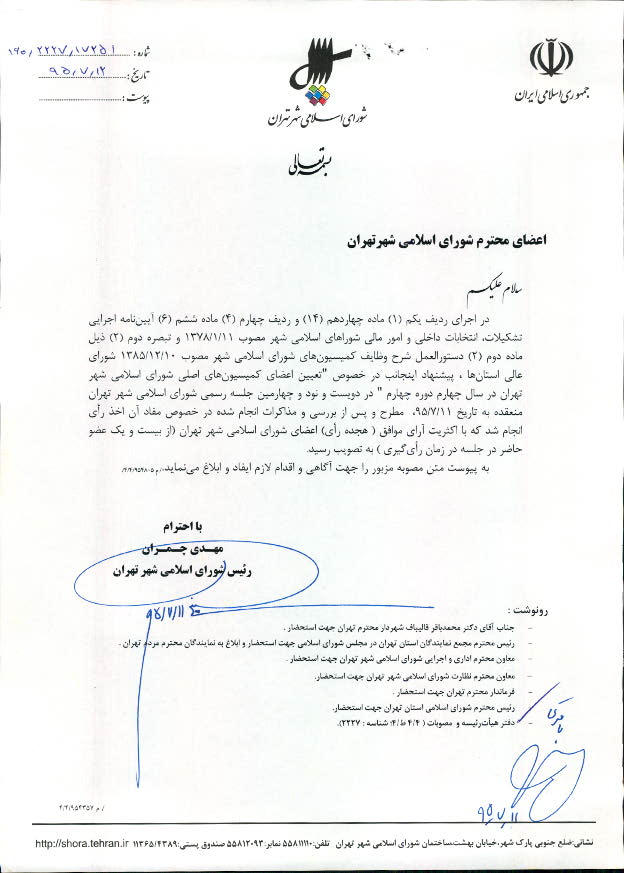 جمهوری اسلامی ایران
شورای اسلامی شهر تهران
شماره: ۱۹۰/۲۲۲۷/۱۷۲۵۱
تاریخ: ۹۵/۷/۱۲
پیوست:
بسمه تعالی
اعضای محترم شورای اسلامی شهر تهران
سلام علیکم
در اجرای ردیف یکم (۱) ماده چهاردهم (۱۴) و ردیف چهارم (۴) ماده ششم (۶) آیین‌نامه اجرایی
تشکیلات، انتخابات داخلی و امور مالی شوراهای اسلامی شهر مصوب ۱۳۷۸/۱/۱۱ و تبصره دوم (۲) ذیل
ماده دوم (۲) دستورالعمل شرح وظایف کمیسیون‌های شورای اسلامی شهر مصوب ۱۳۸۵/۱۲/۱۰ شورای
عالی استان‌ها ، پیشنهاد اینجانب در خصوص "تعیین اعضای کمیسیون‌های اصلی شورای اسلامی شهر
تهران در سال چهارم دوره چهارم " در دویست و نود و چهارمین جلسه رسمی شورای اسلامی شهر تهران
منعقده به تاریخ ۹۵/۷/۱۱، مطرح و پس از بررسی و مذاکرات انجام شده در خصوص مفاد آن اخذ رأی
انجام شد که با اکثریت آرای موافق ( هجده رأی) اعضای شورای اسلامی شهر تهران (از بیست و یک عضو
حاضر در جلسه در زمان رأی‌گیری ) به تصویب رسید.
به پیوست متن مصوبه مزبور را جهت آگاهی و اقدام لازم ایفاد و ابلاغ می‌نماید.
با احترام
مهدی چمران
رئیس شورای اسلامی شهر تهران
۹۵/۷/۱۱
رونوشت :
- جناب آقای دکتر محمدباقر قالیباف شهردار محترم تهران جهت استحضار .
- رئیس محترم مجمع نمایندگان استان تهران در مجلس شورای اسلامی جهت استحضار و ابلاغ به نمایندگان محترم مردم تهران .
- معاون محترم اداری و اجرایی شورای اسلامی شهر تهران جهت استحضار .
- معاون محترم نظارت شورای اسلامی شهر تهران جهت استحضار.
- فرماندار محترم تهران جهت استحضار .
- رئیس محترم شورای اسلامی استان تهران جهت استحضار.
- دفتر هیأت‌رئیسه و مصوبات ( ۴/۴ ط/۴؛ شناسه : ۲۲۲۷).
/ م ۴/۴/۹۵۴۳۵۷
نشانی:ضلع جنوبی پارک شهر،خیابان بهشت،ساختمان شورای اسلامی شهر تهران تلفن:۵۵۸۱۱۱۱۰ نمابر:۵۵۸۱۲۰۹۳ صندوق پستی:۱۱۳۶۵/۴۳۸۹ http://shora.tehran.ir